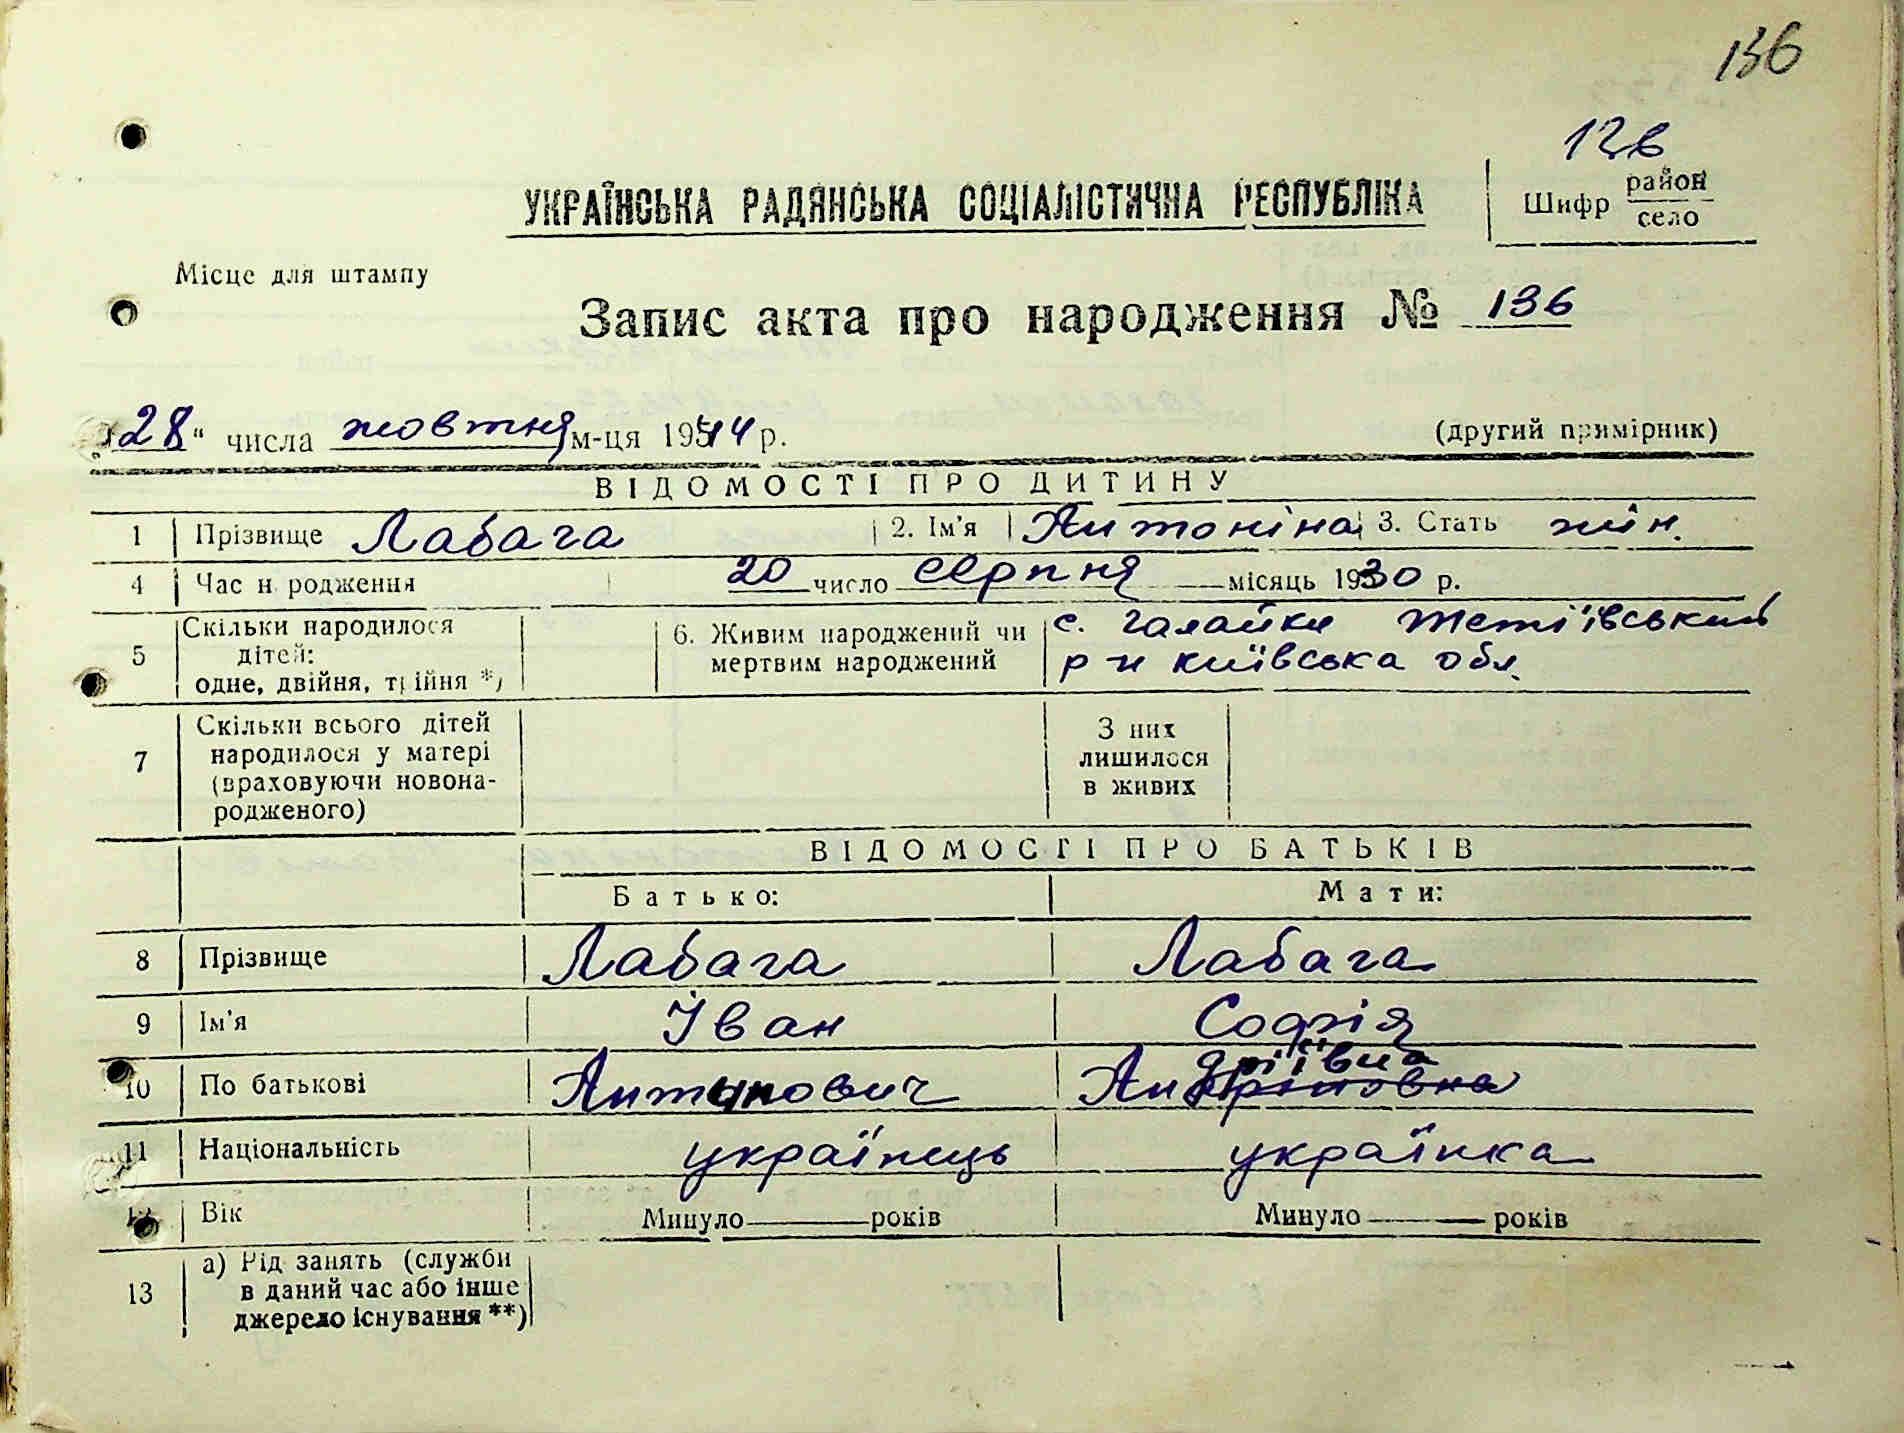 136
12в
УКРАЇНСЬКА РАДЯНСЬКА СОЦІАЛІСТИЧНА РЕСПУБЛІКА
Шифр район
село
Місце для штампу
Запис акта про народження № 136
"28" числа жовтня м-ця 1944 р. (другий примірник)
ВІДОМОСТІ ПРО ДИТИНУ
1 Прізвище Лабага 2. Ім'я Антоніна 3. Стать жін.
4 Час народження 20 число серпня місяць 1930 р.
5 Скільки народилося дітей: одне, двійня, трійня *)
6. Живим народжений чи мертвим народжений
с. Галайки Тетіївський
р-н київська обл.
7 Скільки всього дітей народилося у матері (враховуючи новонародженого)
З них лишилося в живих
ВІДОМОСТІ ПРО БАТЬКІВ
Батько: Мати:
8 Прізвище Лабага Лабага
9 Ім'я Іван Софія
10 По батькові Антонович Андріївна
11 Національність українець українка
12 Вік Минуло років Минуло років
13 а) Рід занять (служби
в даний час або інше
джерело існування **)